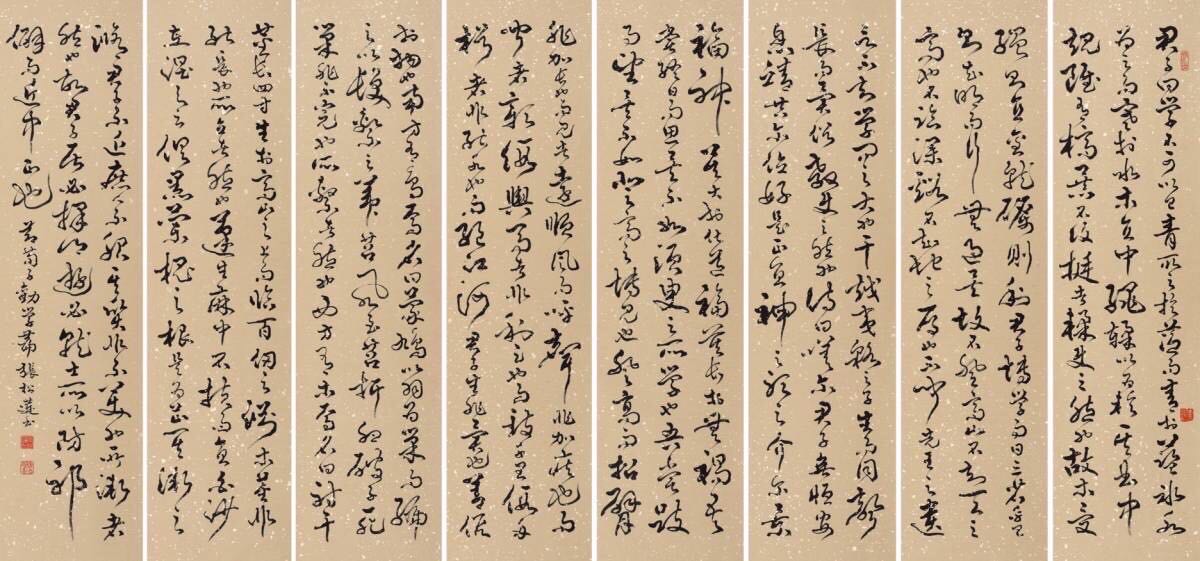 君子曰學不可以已青取之於藍而青於藍冰水
為之而寒於水木直中繩輮以為輪其曲中
規雖有槁暴不復挺者輮使之然也故木受
繩則直金就礪則利君子博學而日三省乎
己則知明而行無過矣故不登高山不知天之
高也不臨深谿不知地之厚也不聞先王之遺
言不知學問之大也干越夷貉之子生而同聲
長而異俗教使之然也詩曰嗟爾君子無恆安
息靖共爾位好是正直神之聽之介爾景
福神莫大於化道福莫長於無禍吾
嘗終日而思矣不如須臾之所學也吾嘗跂
而望矣不如登高之博見也登高而招臂
非加長也而見者遠順風而呼聲非加疾也而
聞者彰假輿馬者非利足也而致千里假舟
楫者非能水也而絕江河君子生非異也善假
於物也南方有鳥焉名曰蒙鳩以羽為巢而編
之以髮繫之葦苕風至苕折卵破子死
巢非不完也所繫者然也西方有木焉名曰射干
莖長四寸生於高山之上而臨百仞之淵木莖非
能長也所立者然也蓬生麻中不扶而直白沙
在涅與之俱黑蘭槐之根是為芷其漸之
滫君子不近庶人不服其質非不美也所漸者
然也故君子居必擇鄉遊必就士所以防邪
僻而近中正也 節荀子勸學篇 張松蓮書